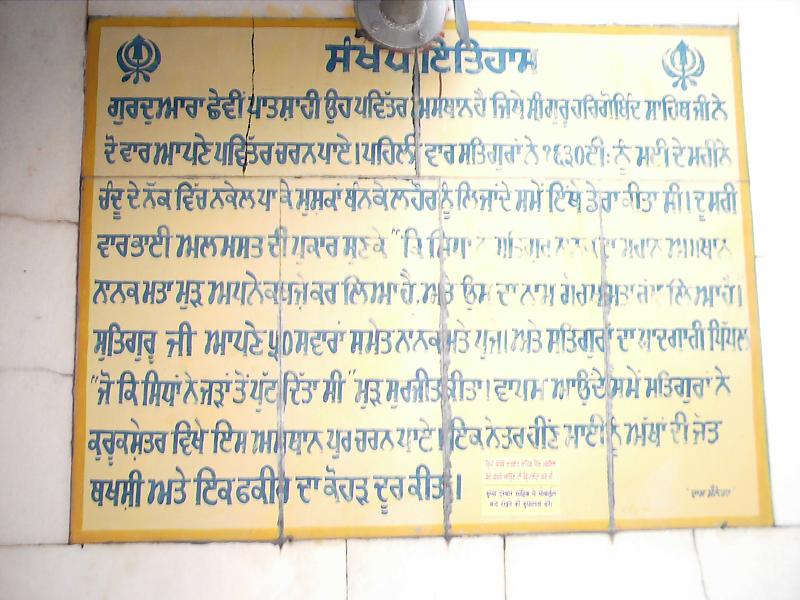 ਸੰਖੇਪ ਇਤਿਹਾਸ
ਗੁਰਦੁਆਰਾ ਛੇਵੀਂ ਪਾਤਸ਼ਾਹੀ ਉਹ ਪਵਿੱਤਰ ਅਸਥਾਨ ਹੈ ਜਿਥੇ ਸ੍ਰੀ ਗੁਰੂ ਹਰਿਗੋਬਿੰਦ ਸਾਹਿਬ ਜੀ ਨੇ
ਦੋ ਵਾਰ ਆਪਣੇ ਪਵਿੱਤਰ ਚਰਨ ਪਾਏ। ਪਹਿਲੀ ਵਾਰ ਸਤਿਗੁਰਾਂ ਨੇ ੧੬੩੦ਈ: ਨੂੰ ਮਈ ਦੇ ਮਹੀਨੇ
ਚੰਦੂ ਦੇ ਨੱਕ ਵਿੱਚ ਨਕੇਲ ਪਾ ਕੇ ਮੁਸ਼ਕਾਂ ਬੰਨਕੇ ਲਾਹੌਰ ਨੂੰ ਲਿਜਾਂਦੇ ਸਮੇਂ ਇੱਥੇ ਡੇਰਾ ਕੀਤਾ ਸੀ। ਦੂਸਰੀ
ਵਾਰ ਭਾਈ ਅਲਮਸਤ ਦੀ ਪੁਕਾਰ ਸੁਣਕੇ "ਕਿ ਸਤਿਗੁਰ ਨਾਨਕ ਦਾ ਅਸਥਾਨ
ਨਾਨਕ ਮਤਾ ਮੁੜ ਅਪਨੇ ਕਬਜੇ ਕਰ ਲਿਆ ਹੈ, ਅਤੇ ਉਸ ਦਾ ਨਾਮ ਗੋਰਖਮਤਾ ਰੱਖ ਲਿਆ ਹੈ।
ਸੁਤਿਗੁਰੂ ਜੀ ਆਪਣੇ ੫੦ ਸਵਾਰਾਂ ਸਮੇਤ ਨਾਨਕ ਮਤੇ ਪੁਜੇ। ਅਤੇ ਸਤਿਗੁਰਾਂ ਦਾ ਯਾਦਗਾਰੀ ਪਿੱਪਲ
"ਜੋ ਕਿ ਸਿਧਾਂ ਨੇ ਜੜ੍ਹਾਂ ਤੋਂ ਪੁੱਟ ਦਿੱਤਾ ਸੀ" ਮੁੜ ਸੁਰਜੀਤ ਕੀਤਾ। ਵਾਪਸ ਆਉਂਦੇ ਸਮੇਂ ਸਤਿਗੁਰਾਂ ਨੇ
ਕੁਰੂਕਸ਼ੇਤਰ ਵਿਖੇ ਇਸ ਅਸਥਾਨ ਪੁਰ ਚਰਨ ਪਾਏ। ਇਕ ਨੇਤਰਹੀਣ ਮਾਈ ਨੂੰ ਅੱਖਾਂ ਦੀ ਜੋਤ
ਬਖਸੀ ਅਤੇ ਇਕ ਫਕੀਰ ਦਾ ਕੋਹੜ ਦੂਰ ਕੀਤਾ।